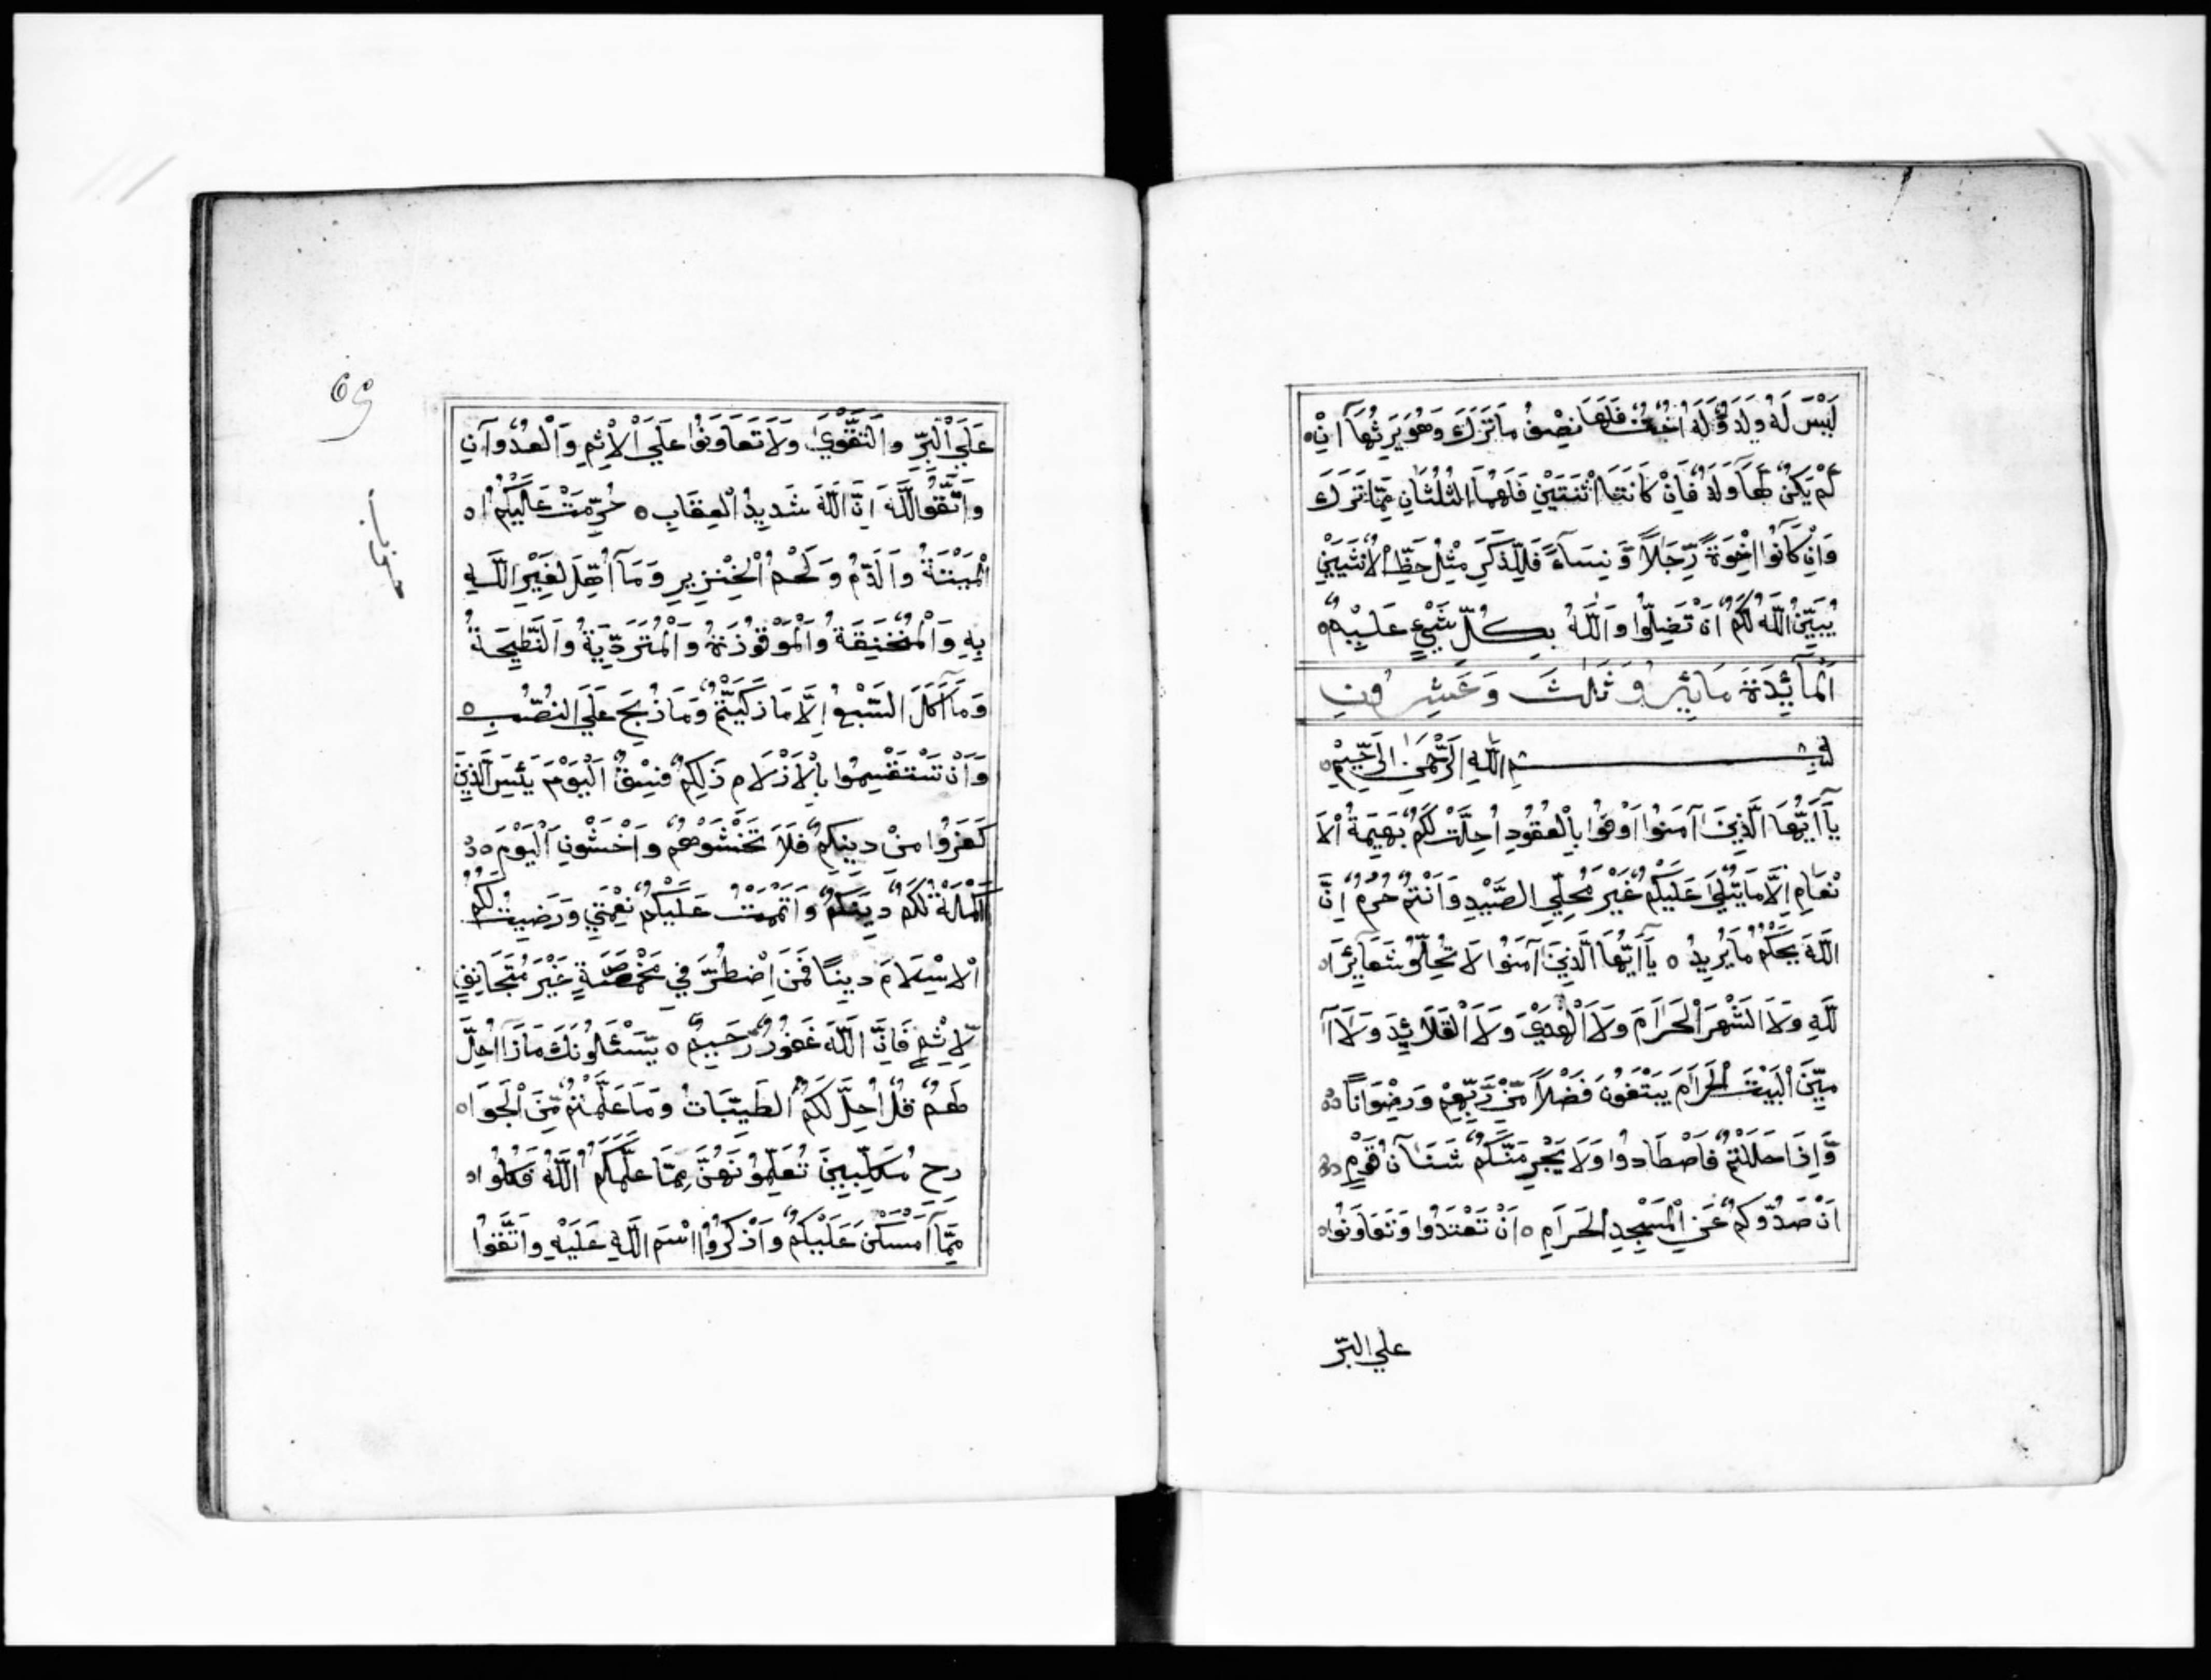 لَيْسَ لَهُ وَلَدٌ وَّلَهُ اُخْتٌ فَلَهَا نِصْفُ مَا تَرَكَ وَهُوَ يَرِثُهَا اِنْ
لَمْ يَكُنْ لَهَا وَلَدٌ فَاِنْ كَانَتَا اثْنَتَيْنِ فَلَهُمَا الثُّلُثَانِ مِمَّا تَرَكَ
وَاِنْ كَانُوا اِخْوَةً رِّجَالًا وَّنِسَآءً فَلِلذَّكَرِ مِثْلُ حَظِّ الْاُنْثَيَيْنِ
يُبَيِّنُ اللَّهُ لَكُمْ اَنْ تَضِلُّوا وَاللَّهُ بِكُلِّ شَيْءٍ عَلِيمٌ
اَلْمَآئِدَة مَايَة وَ ثَلٰثَ وَعَشِرُونِ
بِسْمِ اللَّهِ الرَّحْمٰنِ الرَّحِيْمِ
يَآ اَيُّهَا الَّذِينَ آمَنُوا اَوْفُوا بِالْعُقُودِ اُحِلَّتْ لَكُمْ بَهِيمَةُ الْاَ
نْعَامِ اِلَّا مَا يُتْلَى عَلَيْكُمْ غَيْرَ مُحِلِّي الصَّيْدِ وَاَنْتُمْ حُرُمٌ اِنَّ
اللَّهَ يَحْكُمُ مَا يُرِيدُ ٥ يَآ اَيُّهَا الَّذِينَ آمَنُوا لَا تُحِلُّوْ شَعَآئِرَ ا
للَّهِ وَلَا الشَّهْرَ الْحَرَامَ وَلَا الْهَدْيَ وَلَا الْقَلَآئِدَ وَلَا آ
مِّينَ الْبَيْتَ الْحَرَامَ يَبْتَغُونَ فَضْلًا مِّنْ رَّبِّهِمْ وَرِضْوَانًا
وَّاِذَا حَلَلْتُمْ فَاصْطَادُوا وَلَا يَجْرِمَنَّكُمْ شَنَآنُ قَوْمٍ
اَنْ صَدُّوكُمْ عَنِ الْمَسْجِدِ الْحَرَامِ ٥ اَنْ تَعْتَدُوا وَتَعَاوَنُوا
علي البرّ
عَلَى الْبِرِّ وَالتَّقْوَى وَلَا تَعَاوَنُوا عَلَى الْاِثْمِ وَالْعُدْوَانِ
وَاتَّقُوا اللَّهَ اِنَّ اللَّهَ شَدِيدُ الْعِقَابِ ٥ حُرِّمَتْ عَلَيْكُمُ ا
الْمَيْتَةُ وَالدَّمُ وَلَحْمُ الْخِنْزِيرِ وَمَآ اُهِلَّ لِغَيْرِ اللَّهِ
بِهِ وَالْمُنْخَنِقَةُ وَالْمَوْقُوْذَةُ وَالْمُتَرَدِّيَةُ وَالنَّطِيحَةُ
وَمَآ اَكَلَ السَّبُعُ اِلَّا مَا ذَكَّيْتُمْ وَمَا ذُبِحَ عَلَى النُّصُبِ
وَاَنْ تَسْتَقْسِمُوا بِالْاَزْلَامِ ذَلِكُمْ فِسْقٌ اَلْيَوْمَ يَئِسَ الَّذِينَ
كَفَرُوا مِنْ دِينِكُمْ فَلَا تَخْشَوْهُمْ وَاخْشَوْنِ اَلْيَوْمَ
اَكْمَلْتُ لَكُمْ دِيْنَكُمْ وَاَتْمَمْتُ عَلَيْكُمْ نِعْمَتِي وَرَضِيتُ لَكُمُ
الْاِسْلَامَ دِينًا فَمَنِ اضْطُرَّ فِي مَخْمَصَةٍ غَيْرَ مُتَجَانِفٍ
لِّاِثْمٍ فَاِنَّ اللَّهَ غَفُورٌ رَّحِيمٌ ٥ يَسْئَلُونَكَ مَاذَا اُحِلَّ
لَهُمْ قُلْ اُحِلَّ لَكُمُ الطَّيِّبَاتُ وَمَا عَلَّمْتُمْ مِّنَ الْجَوَا
رِحِ مُكَلِّبِينَ تُعَلِّمُوْنَهُنَّ مِمَّا عَلَّمَكُمُ اللَّهُ فَكُلُوا
مِمَّآ اَمْسَكْنَ عَلَيْكُمْ وَاذْكُرُوا اسْمَ اللَّهِ عَلَيْهِ وَاتَّقُوا